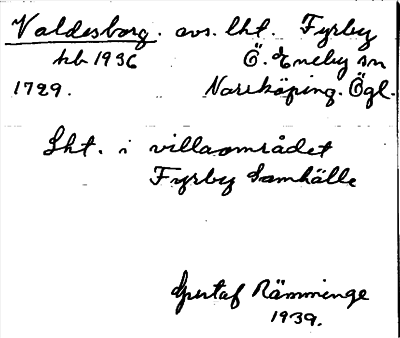 Valdesborg. avs. lht. Fyrby
hb 1936 Ö. Eneby sn
1729. Norrköping. Ögl.
Lht. i villaområdet
Fyrby Samhälle
Gustaf Rämminge
1939.